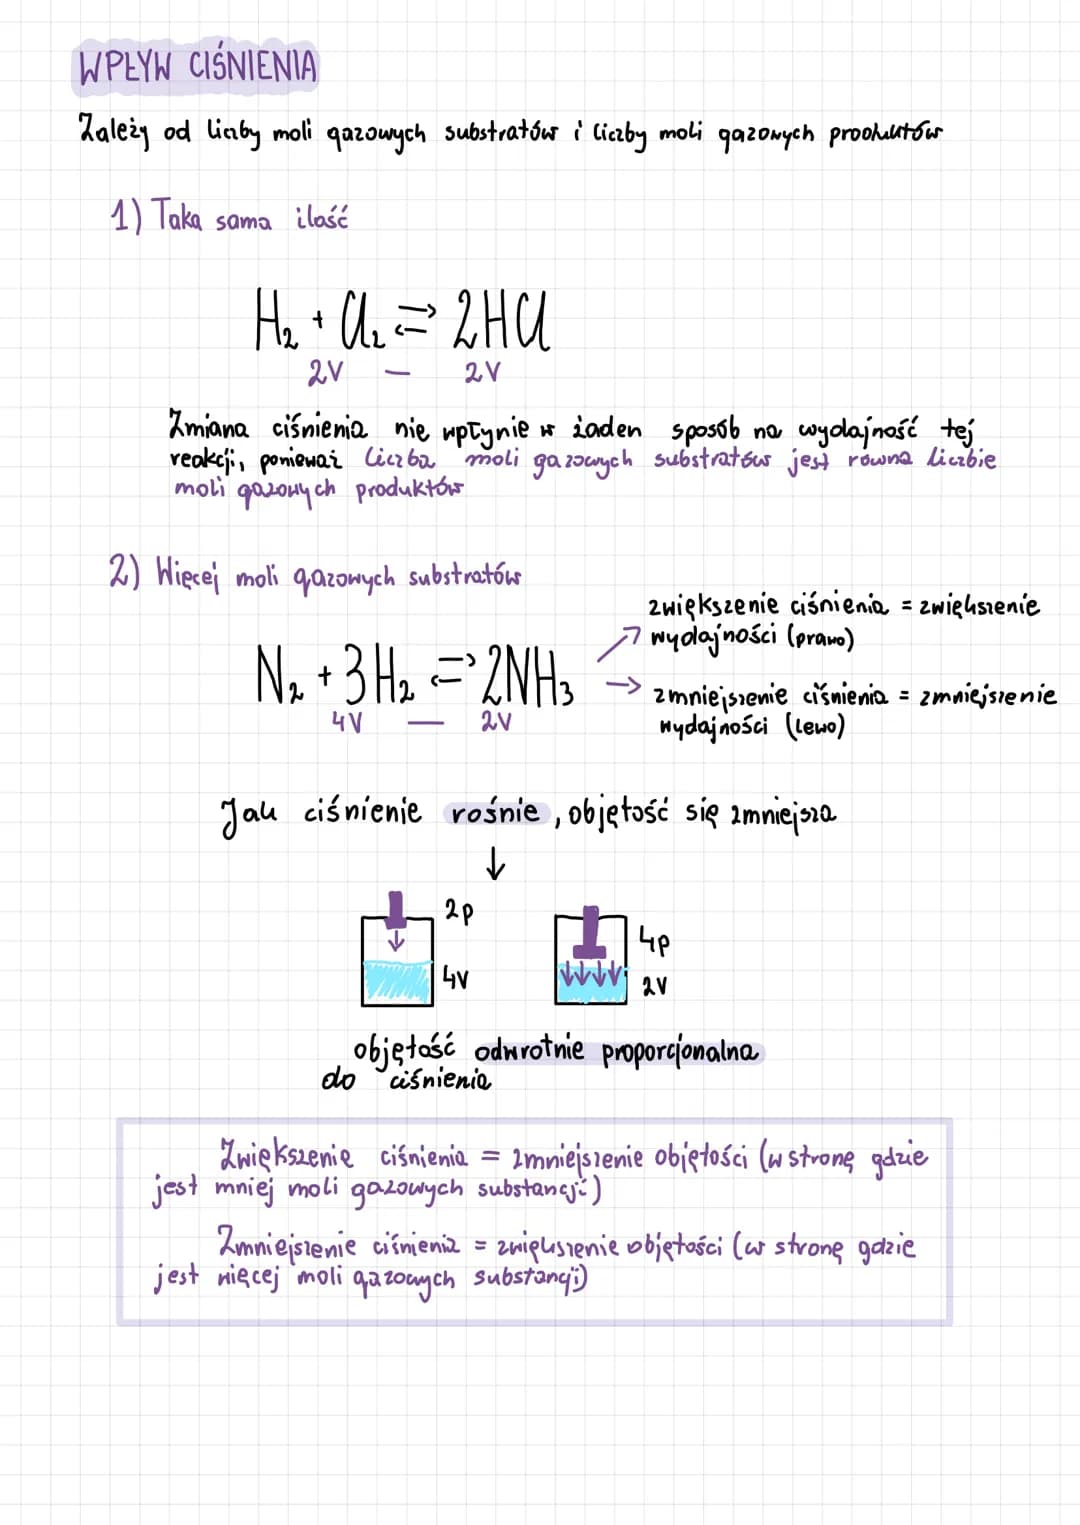 WPŁYW CIŚNIENIA
Zależy od liczby moli gazowych substratów i liczby moli gazowych produktów
1) Taka sama ilość
H₂ + Cl₂ ⇌ 2HCl
2V — 2V
Zmiana ciśnienia nie wpłynie w żaden sposób na wydajność tej
reakcji, ponieważ liczba moli gazowych substratów jest równa liczbie
moli gazowych produktów
2) Więcej moli gazowych substratów
zwiększenie ciśnienia = zwiększenie
↗ wydajności (prawo)
N₂ + 3H₂ ⇌ 2NH₃
4V — 2V
→ zmniejszenie ciśnienia = zmniejszenie
wydajności (lewo)
Jak ciśnienie rośnie, objętość się zmniejsza
↓
2p
4V
4p
2V
objętość odwrotnie proporcjonalna
do ciśnienia
Zwiększenie ciśnienia = zmniejszenie objętości (w stronę gdzie
jest mniej moli gazowych substancji)
Zmniejszenie ciśnienia = zwiększenie objętości (w stronę gdzie
jest więcej moli gazowych substancji)